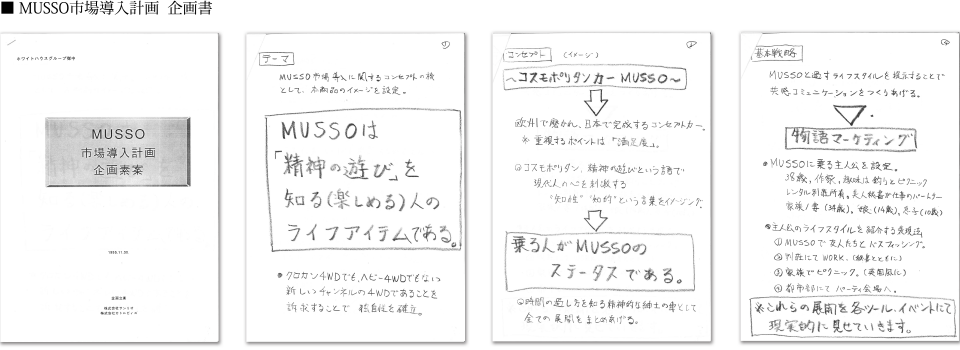 ■ MUSSO市場導入計画 企画書
ホワイトハウスグループ御中
MUSSO
市場導入計画
企画素案
企画立案
テーマ
MUSSO市場導入に関するコンセプトの核
として、本商品のイメージを設定。
MUSSOは
「精神の遊び」を
知る(楽しめる)人の
ライフアイテムである。
●クロカン4WDでも、ヘビー4WDでもない
新しいチャンネルの4WDであることを
訴求することで 独自性を確立。
コンセプト (イメージ)
〜コスモポリタンカー MUSSO〜
欧州で磨かれ、日本で完成するコンセプトカー。
※ 重視するポイントは「満足度」。
コスモポリタン、精神の遊びという語で
現代人の心を刺激する
"知性" "知的"という言葉をイメージング。
乗る人がMUSSOの
ステータスである。
時間の過し方を知る精神的な紳士の車として
全ての展開をまとめあげる。
基本戦略
MUSSOと過すライフスタイルを提示することで
共感コミュニケーションをつくりあげる。
物語マーケティング
●MUSSOに乗る主人公を設定。
38歳、作家、趣味は釣りとピクニック
レンタル別荘所有。美人秘書が仕事のパートナー
家族/妻(34歳)、娘(14歳)、息子(10歳)
●主人公のライフスタイルを紹介する表現法
① MUSSOで友人たちとバスフィッシング。
② 別荘にてWORK。(秘書とともに)
③ 家族でピクニック。(英国風に)
④ 都市部にてパーティ会場へ。
※これらの展開を各ツール、イベントにて
現実的に見せていきます。